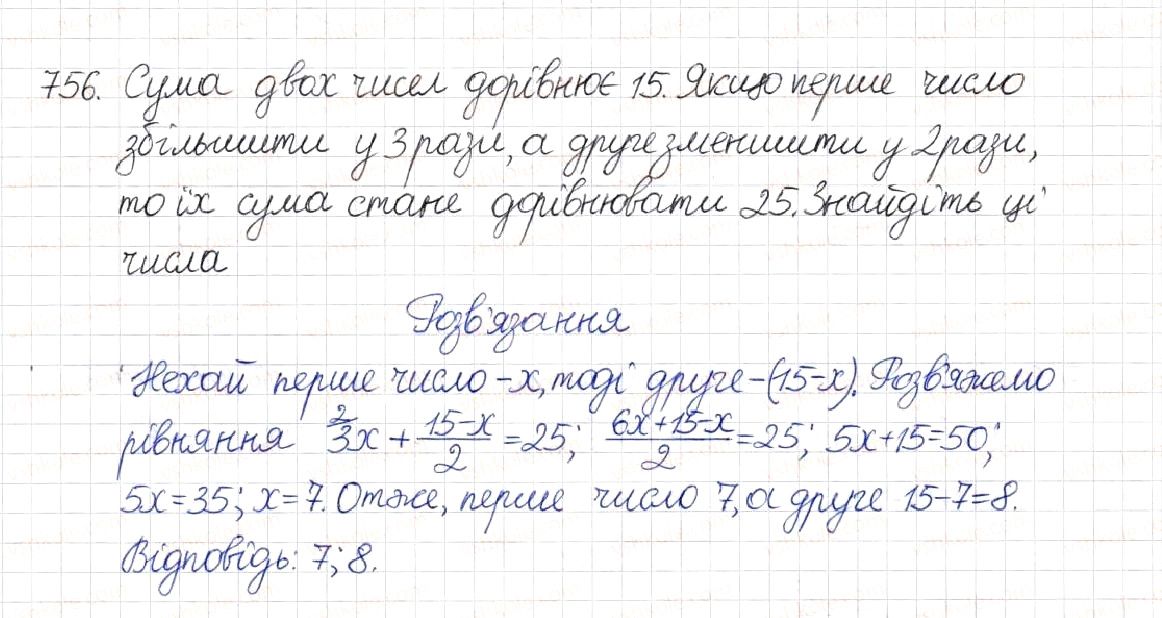 756. Сума двох чисел дорівнює 15. Якщо перше число
збільшити у 3 рази, а друге зменшити у 2 рази,
то їх сума стане дорівнювати 25. Знайдіть ці
числа
Розв'язання
Нехай перше число - x, тоді друге - (15-x). Розв'яжемо
рівняння ²⁄3x + (15-x)/2 = 25; (6x+15-x)/2 = 25; 5x+15=50;
5x=35; x=7. Отже, перше число 7, а друге 15-7=8.
Відповідь: 7; 8.